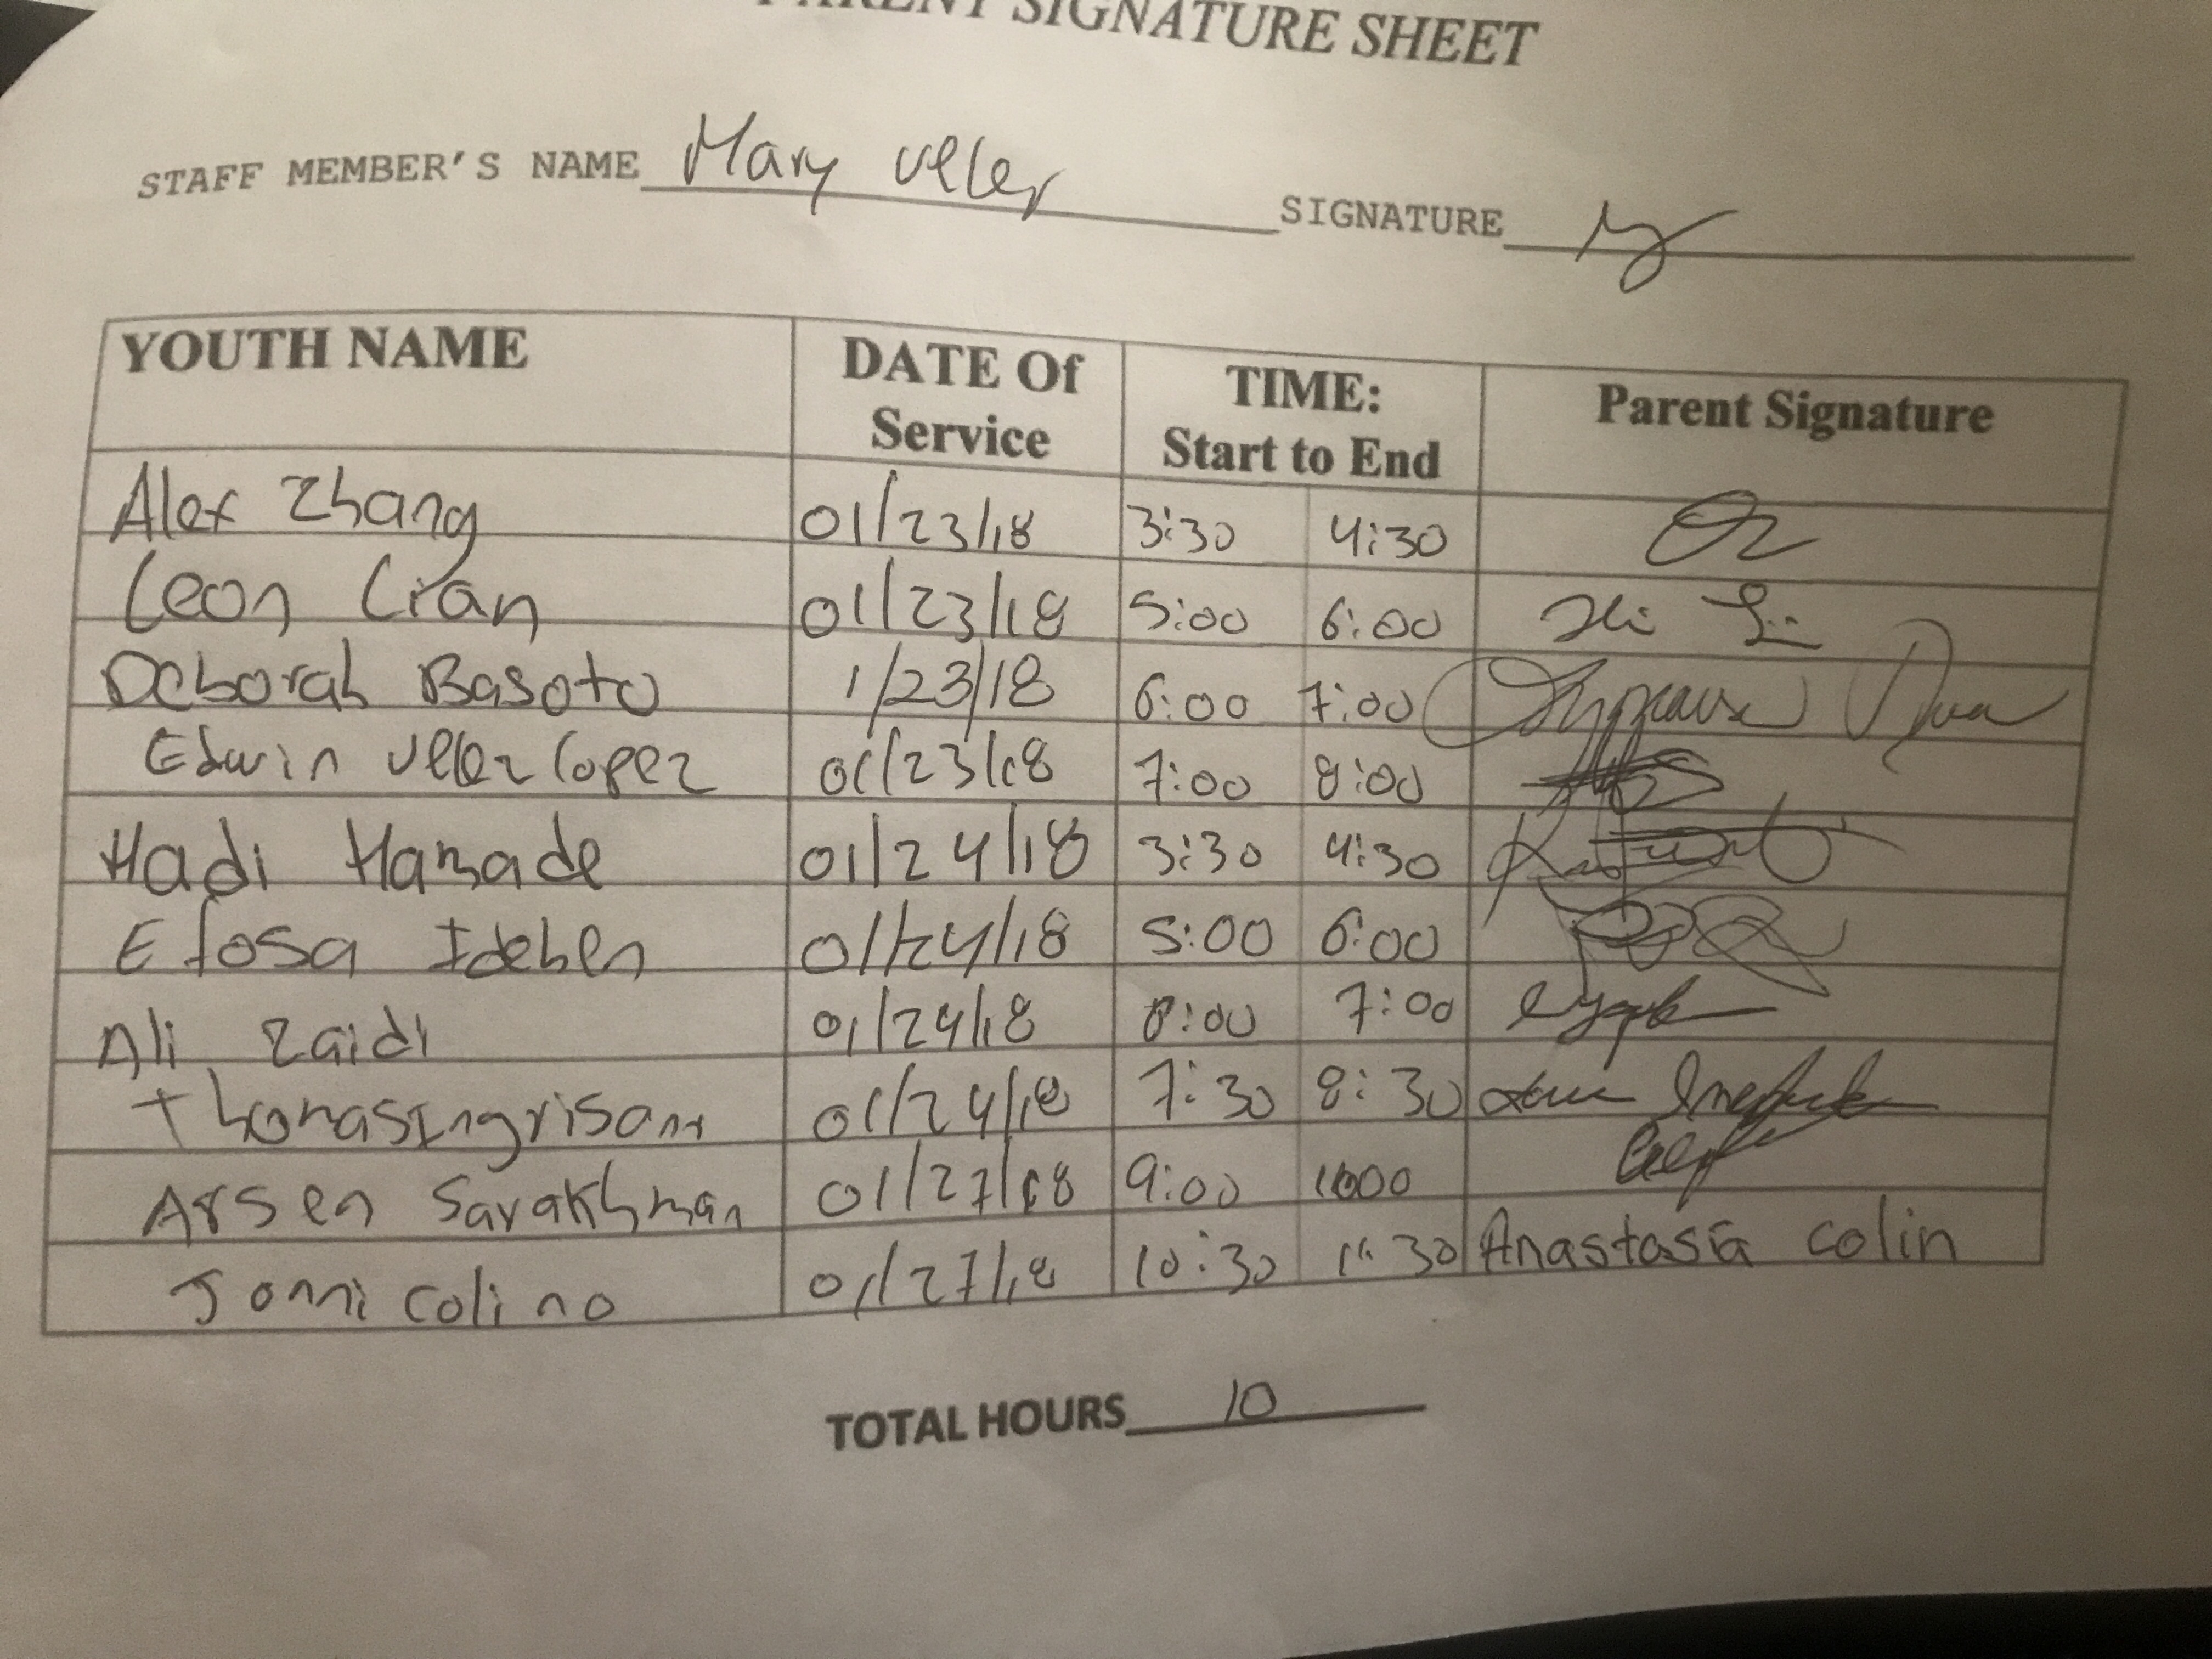 PARENT SIGNATURE SHEET
STAFF MEMBER'S NAME Mary Uller SIGNATURE
YOUTH NAME DATE Of Service TIME: Start to End Parent Signature
Alex Zhang 01/23/18 3:30 4:30
Leon Liran 01/23/18 5:00 6:00
Deborah Basoto 1/23/18 6:00 7:00
Edwin Uller Lopez 01/23/18 7:00 8:00
Hadi Hamade 01/24/18 3:30 4:30
Efosa Idehen 01/24/18 5:00 6:00
Ali Zaidi 01/24/18 7:00
Thomas Ingrison 01/24/18 7:30 8:30
Arsen Sarakhman 01/27/18 9:00
Jonni colino 01/27/18 10:30 1:30 Anastasia colin
TOTAL HOURS 10